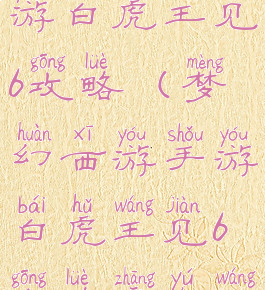 游白虎王见
gōng lüè mèng
6攻略（梦
huàn xī yóu shǒu yóu
幻西游手游
bái hǔ wáng jiàn
白虎王见6
gōng lüè zhāng yú wáng